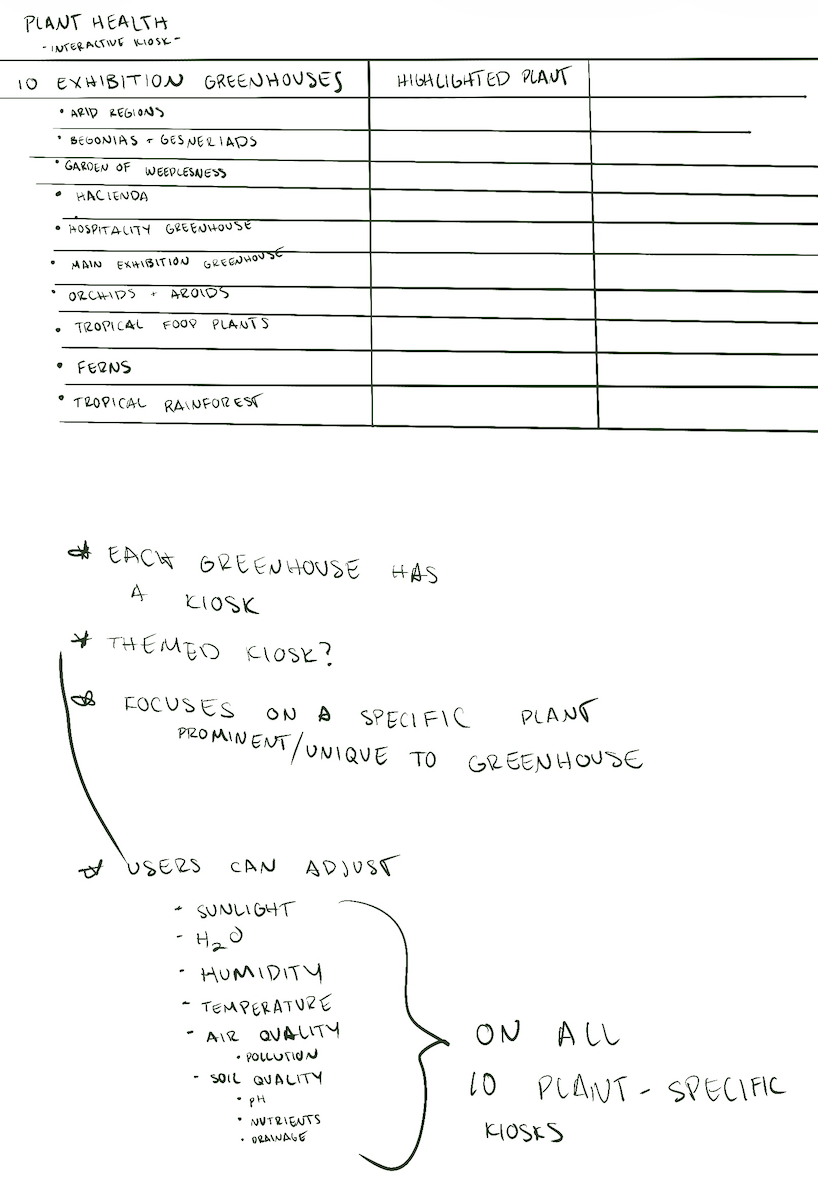 PLANT HEALTH
- INTERACTIVE KIOSK -
10 EXHIBITION GREENHOUSES HIGHLIGHTED PLANT
• ARID REGIONS
• BEGONIAS + GESNERIADS
• GARDEN OF WEEDLESNESS
• HACIENDA
• HOSPITALITY GREENHOUSE
• MAIN EXHIBITION GREENHOUSE
• ORCHIDS + AROIDS
• TROPICAL FOOD PLANTS
• FERNS
• TROPICAL RAINFOREST
* EACH GREENHOUSE HAS
A KIOSK
* THEMED KIOSK?
* FOCUSES ON A SPECIFIC PLANT
PROMINENT/UNIQUE TO GREENHOUSE
* USERS CAN ADJUST
- SUNLIGHT
- H2O
- HUMIDITY
- TEMPERATURE
- AIR QUALITY
• POLLUTION
- SOIL QUALITY
• pH
• NUTRIENTS
• DRAINAGE
ON ALL
10 PLANT-SPECIFIC
KIOSKS